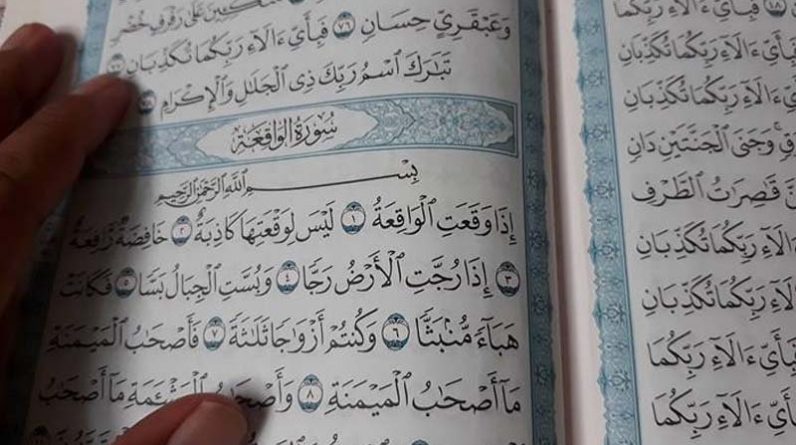 فَبِأَيِّ ءَالَآءِ رَبِّكُمَا
فَبِأَيِّ ءَالَآءِ رَبِّكُمَا تُكَذِّبَانِ
ءَالَآءِ رَبِّكُمَا تُكَذِّبَانِ
وَجَنَى ٱلْجَنَّتَيْنِ دَانٍ
قَٰصِرَٰتُ ٱلطَّرْفِ
رَبِّكُمَا تُكَذِّبَانِ
رَبِّكُمَا تُكَذِّبَانِ
ءَالَآءِ رَبِّكُمَا
ءَالَآءِ رَبِّكُمَا
مُتَّكِـِٔينَ عَلَىٰ رَفْرَفٍ خُضْرٍ
وَعَبْقَرِيٍّ حِسَانٍ ٧٦ فَبِأَيِّ ءَالَآءِ رَبِّكُمَا تُكَذِّبَانِ ٧٧
تَبَٰرَكَ ٱسْمُ رَبِّكَ ذِى ٱلْجَلَٰلِ وَٱلْإِكْرَامِ ٧٨
سُورَةُ الوَاقِعَةِ
بِسْمِ ٱللَّهِ ٱلرَّحْمَٰنِ ٱلرَّحِيمِ
إِذَا وَقَعَتِ ٱلْوَاقِعَةُ ١ لَيْسَ لِوَقْعَتِهَا كَاذِبَةٌ ٢ خَافِضَةٌ رَّافِعَةٌ
٣ إِذَا رُجَّتِ ٱلْأَرْضُ رَجًّا ٤ وَبُسَّتِ ٱلْجِبَالُ بَسًّا ٥ فَكَانَتْ
هَبَآءً مُّنۢبَثًّا ٦ وَكُنتُمْ أَزْوَٰجًا ثَلَٰثَةً ٧ فَأَصْحَٰبُ ٱلْمَيْمَنَةِ
مَآ أَصْحَٰبُ ٱلْمَيْمَنَةِ ٨ وَأَصْحَٰبُ ٱلْمَشْـَٔمَةِ مَآ أَصْحَٰبُ